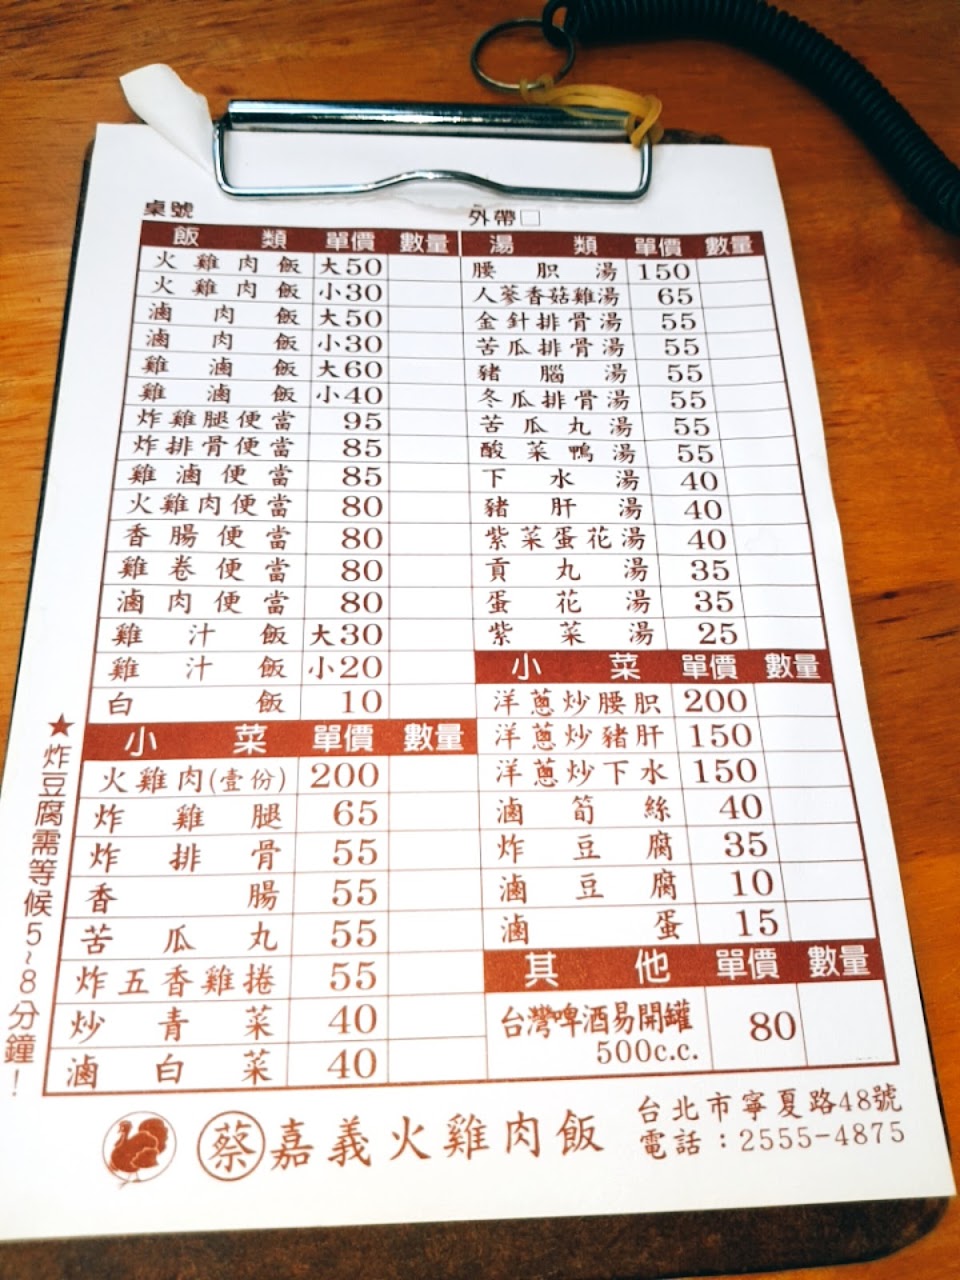 桌號
外帶□
飯類 單價 數量
火雞肉飯 大50
火雞肉飯 小30
滷肉飯 大50
滷肉飯 小30
雞滷飯 大60
雞滷飯 小40
炸雞腿便當 95
炸排骨便當 85
雞滷便當 85
火雞肉便當 80
香腸便當 80
雞卷便當 80
滷肉便當 80
雞汁飯 大30
雞汁飯 小20
白飯 10
小菜 單價 數量
火雞肉(壹份) 200
炸雞腿 65
炸排骨 55
香腸 55
苦瓜丸 55
炸五香雞捲 55
炒青菜 40
滷白菜 40
湯類 單價 數量
腰胑湯 150
人蔘香菇雞湯 65
金針排骨湯 55
苦瓜排骨湯 55
豬腦湯 55
冬瓜排骨湯 55
苦瓜丸湯 55
酸菜鴨湯 55
下水湯 40
豬肝湯 40
紫菜蛋花湯 40
貢丸湯 35
蛋花湯 35
紫菜湯 25
小菜 單價 數量
洋蔥炒腰胑 200
洋蔥炒豬肝 150
洋蔥炒下水 150
滷筍絲 40
炸豆腐 35
滷豆腐 10
滷蛋 15
其他 單價 數量
台灣啤酒易開罐 80
500c.c.
★炸豆腐需等候5~8分鐘!
蔡 嘉義火雞肉飯
台北市寧夏路48號
電話：2555-4875